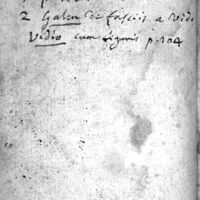 2 Galen de fasciis a Vido
Vidio cum figuris p. 104